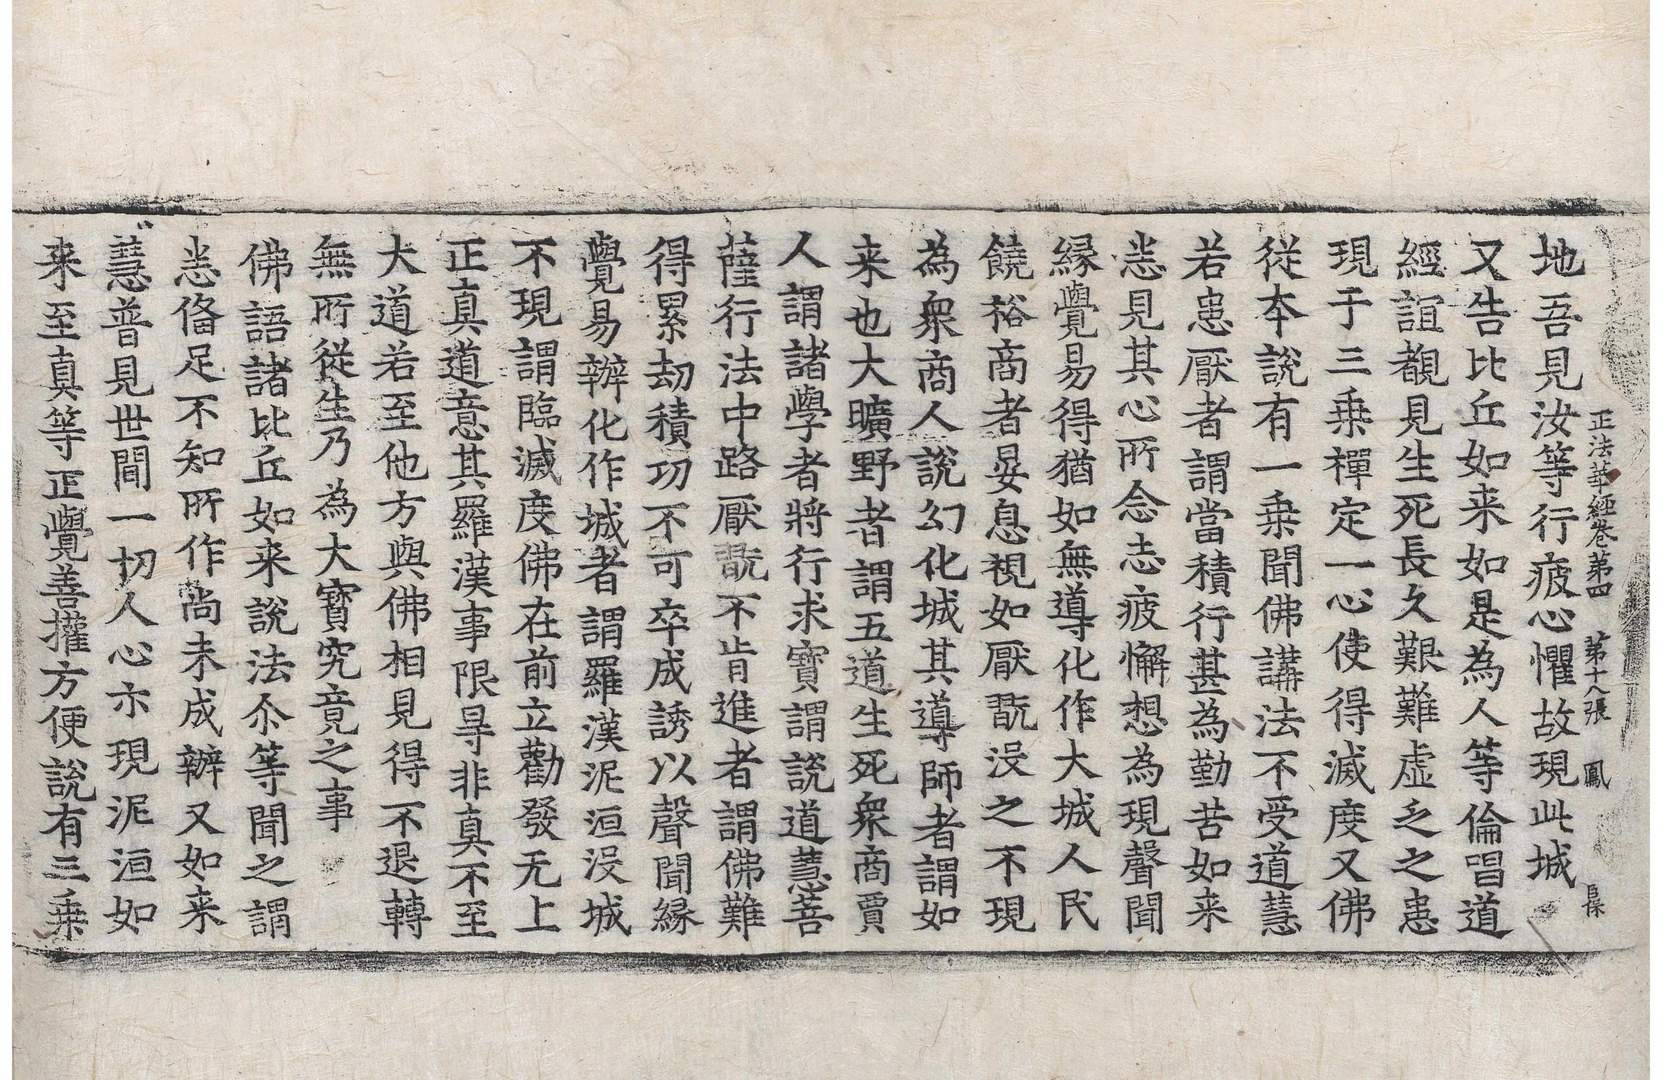 正法華經卷第四 第十八張 鳳
地吾見汝等行疲心懼故現此城
又告比丘如来如是為人等倫唱道
經誼覩見生死長久艱難虚乏之患
現于三乗禪定一心使得滅度又佛
従本說有一乗聞佛講法不受道慧
若患厭者謂當積行甚為勤苦如来
恙見其心所念志疲懈想為現聲聞
縁覺易得猶如無導化作大城人民
饒裕商者晏息視如厭翫没之不現
為衆商人說幻化城其導師者謂如
来也大曠野者謂五道生死衆商賈
人謂諸學者將行求寶謂説道慧菩
薩行法中路厭翫不肯進者謂佛難
得累劫積功不可卒成誘以聲聞縁
覺易辦化作城者謂羅漢泥洹没城
不現謂臨滅度佛在前立勸發无上
正真道意其羅漢事限㝵非真不至
大道若至他方與佛相見得不退轉
無所從生乃為大寳究竟之事
佛語諸比丘如来說法尒等聞之謂
恙俻足不知所作尚未成辦又如来
慧普見世間一切人心亦現泥洹如
来至真等正覺善權方便說有三乗